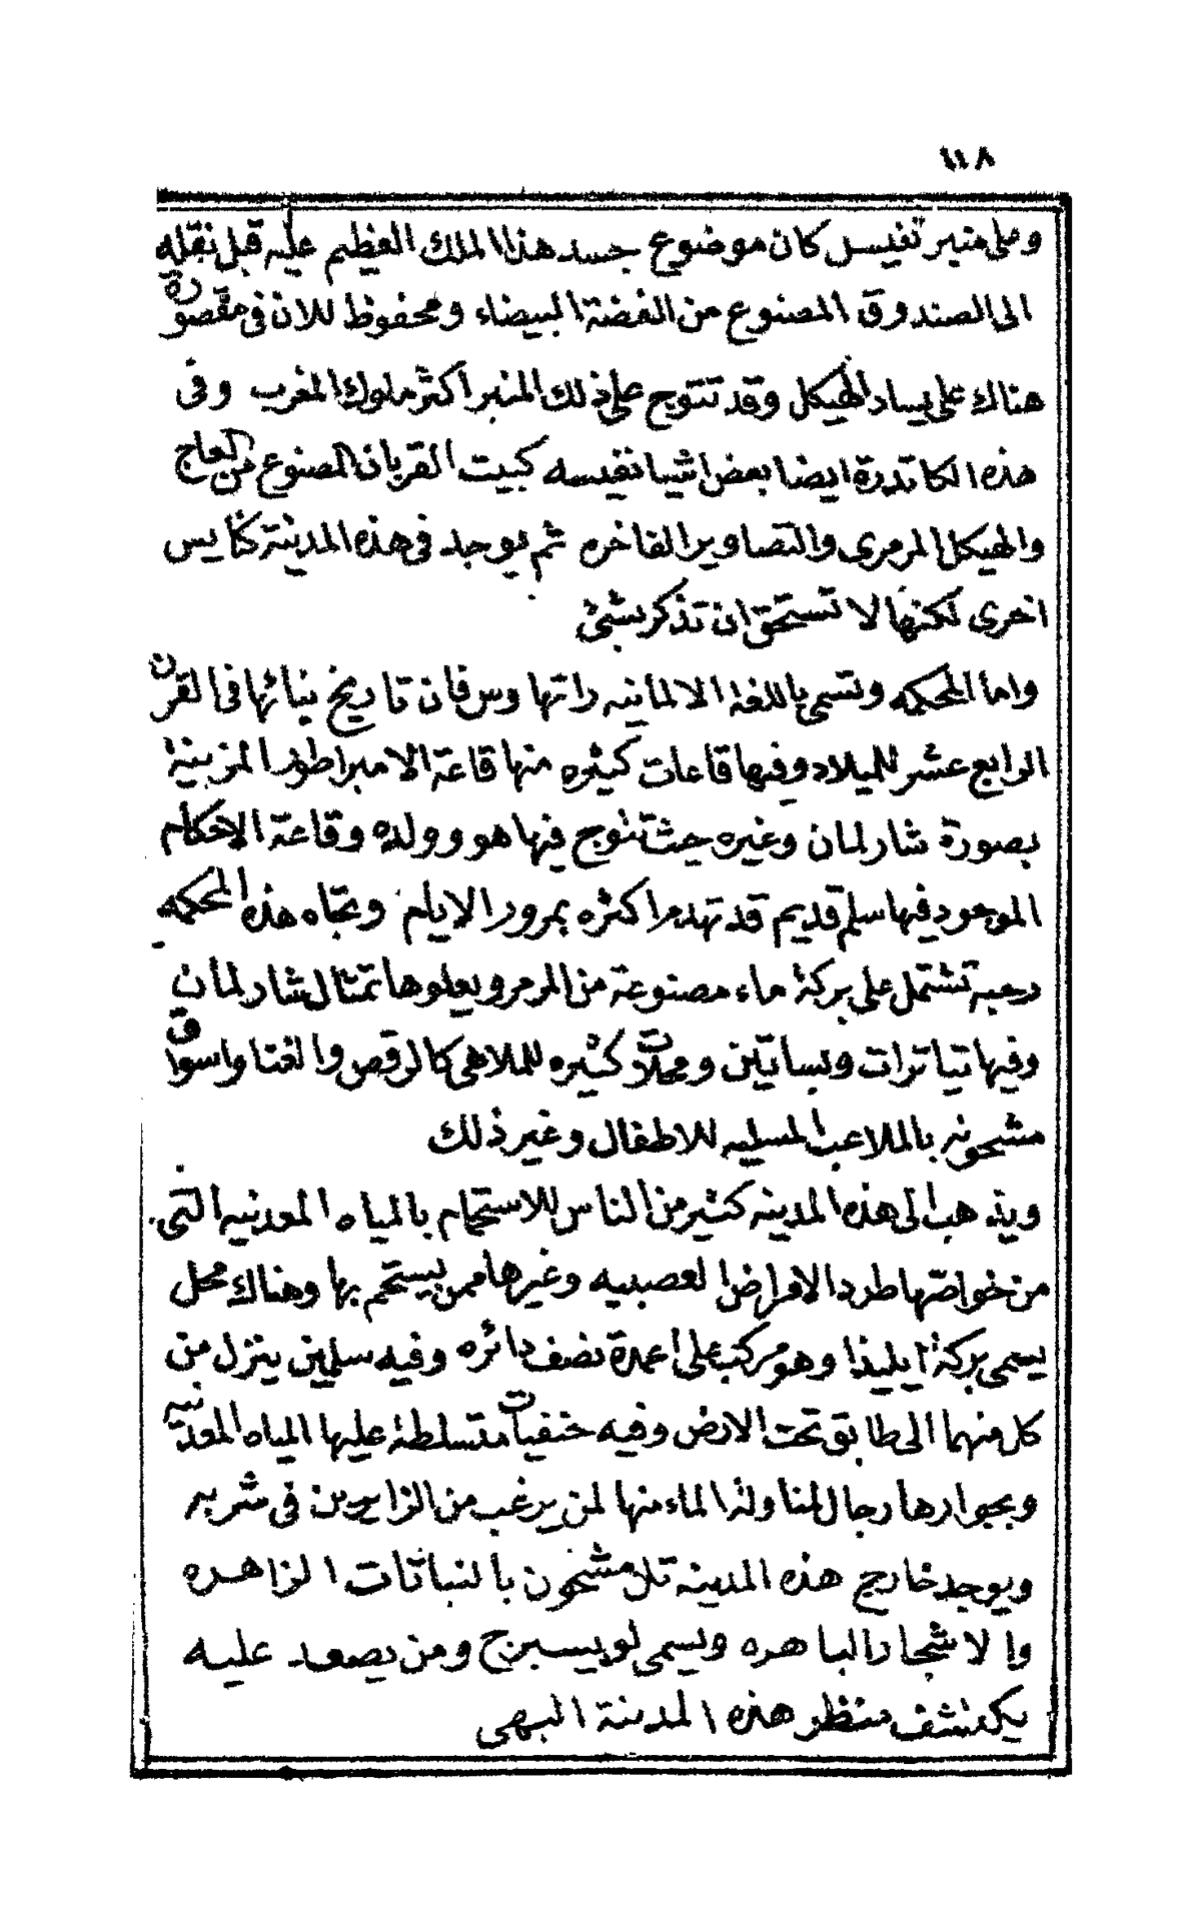 ١١٨
وعلى منبر نفيس كان موضوع جسد هذا الملك العظيم عليه قبل نقله
الى الصندوق المصنوع من الفضة البيضاء ومحفوظ للان فى مقصورة
هناك على يسار الهيكل وقد تتوج على ذلك المنبر اكثر ملوك المغرب وفى
هذه الكاتدرة ايضا بعض اشيا نفيسه كبيت القربان المصنوع من العاج
والهيكل المرمرى والتصاوير الفاخره ثم يوجد فى هذه المدينة كنايس
اخرى لكنها لا تستحق ان تذكر بشئ
واما المحكمه وتسمى باللغة الالمانيه راتها وس فان تاريخ بنائها فى القرن
الرابع عشر للميلاد وفيها قاعات كثيره منها قاعة الامبراطور المزينة
بصورة شارلمان وغيره حيث تتوج فيها هو وولده وقاعة الاحكام
الموجود فيها سلم قديم قد تهدم اكثره بمرور الايام وتجاه هذه المحكمه
رحبه تشتمل على بركة ماء مصنوعة من المرمر ويعلوها تمثال شارلمان
وفيها تياترات وبساتين ومحلات كثيره للملاهى كالرقص والغنا واسواق
مشحونه بالملاعب المسليه للاطفال وغير ذلك
ويذهب الى هذه المدينه كثير من الناس للاستحمام بالمياه المعدنيه التى
من خواصها طرد الامراض العصبيه وغيرها ممن يستحم بها وهناك محل
يسمى بركة ايليذا وهو مركب على اعمدة نصف دائره وفيه سلمين ينزل من
كل منهما الى طابق تحت الارض وفيه حنفيات متسلطة عليها المياه المعدنيه
وبجوارها رجال لمناولة الماء منها لمن يرغب من الزايرين فى شربه
ويوجد خارج هذه المدينه تل مشحون بالنباتات الزاهره
والاشجار الباهره ويسمى لويسبرج ومن يصعد عليه
يكتشف منظر هذه المدينة البهى